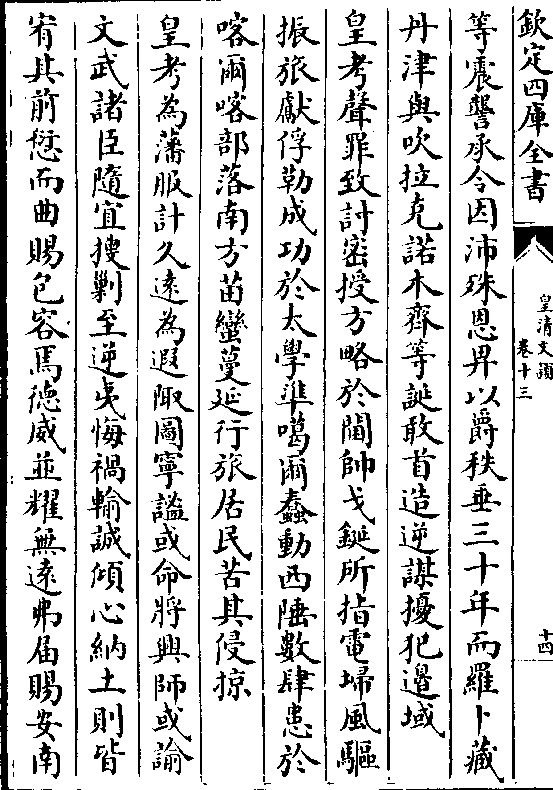 欽定四庫全書
皇清文穎
卷十三
十四
等震讋承令因沛殊恩畀以爵秩垂三十年而羅卜藏
丹津與吹拉克諾木齊等誕敢首造逆謀擾犯邉域
皇考聲罪致討密授方略於閫帥戈鋋所指電埽風驅
振旅獻俘勒成功於太學準噶爾蠢動西陲數肆患於
喀爾喀部落南方苗蠻蔓延行旅居民苦其侵掠
皇考為藩服計久遠為遐陬圖寧謐或命將興師或諭
文武諸臣隨宜搜剿至逆夷悔禍輸誠傾心納土則皆
宥其前愆而曲賜包容焉德威並耀無逺弗届賜安南